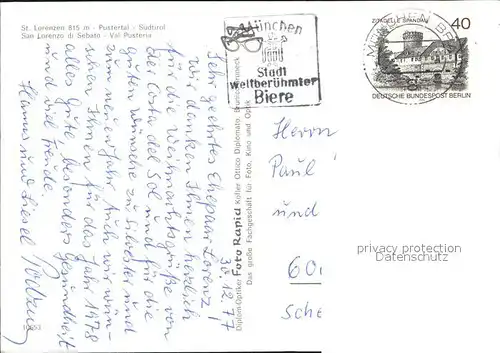 St. Lorenzen 815 m - Pustertal / Südtirol
San Lorenzo di Sebato - Val Pusteria
30.12.77
Sehr geehrtes Ehepaar Lorenz!
Wir danken Ihnen herzlich
für die Weihnachtsgrüße von
der Costa del Sol und für die
guten Wünsche zu Silvester und
zum neuen Jahr. Auch wir wün-
schen Ihnen für das Jahr 1978
alles Gute besonders Gesundheit
und viel Freude.
Hannes und Liesel
10653
Diplom-Optiker Foto Rapid Kofler Ottico Diplomato,
Das große Fachgeschäft für Foto, Kino und Optik
München
Stadt
weltberühmter
Biere
ZITADELLE SPANDAU
40
DEUTSCHE BUNDESPOST BERLIN
Herrn
Paul
und
60
Sche
privacy protection
Datenschutz